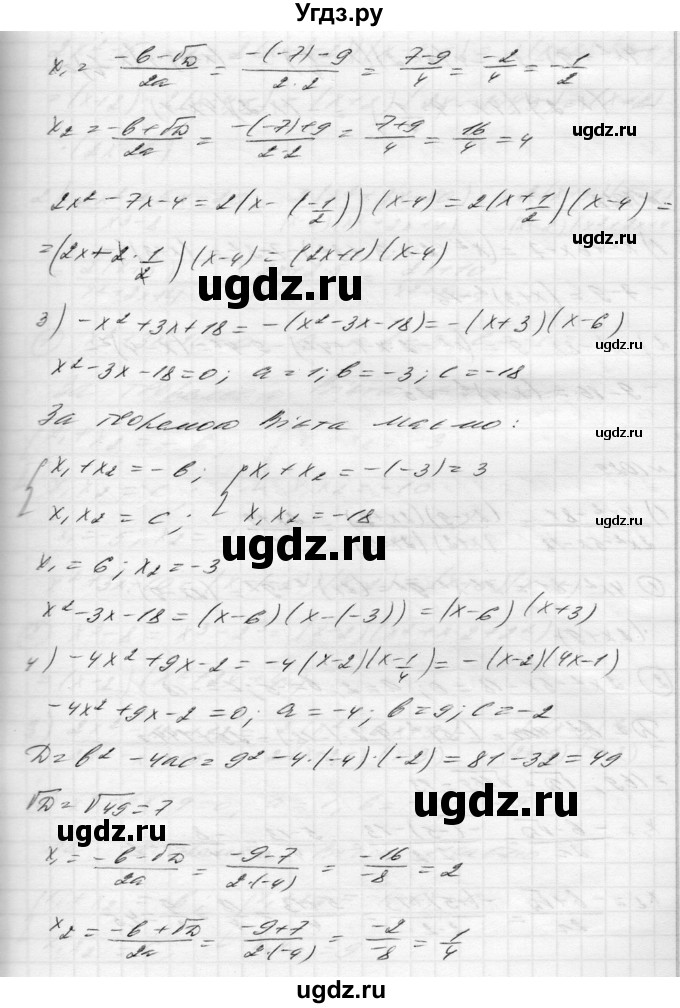 Угдз.ру
x₁ = (-b-√D)/2a = (-(-7)-9)/(2·2) = (7-9)/4 = -2/4 = -1/2
x₂ = (-b+√D)/2a = (-(-7)+9)/(2·2) = (7+9)/4 = 16/4 = 4
ugdz.ru
2x² - 7x - 4 = 2(x - (-1/2))(x-4) = 2(x + 1/2)(x-4) =
ugdz.ru
= (2x + 2·1/2)(x-4) = (2x+1)(x-4)
ugdz.ru
3) -x² + 3x + 18 = -(x² - 3x - 18) = -(x+3)(x-6)
ugdz.ru
x² - 3x - 18 = 0; a = 1; b = -3; c = -18
За теоремою Вієта маємо:
{ x₁ + x₂ = -b; { x₁ + x₂ = -(-3) = 3
x₁x₂ = c; x₁x₂ = -18
ugdz.ru
x₁ = 6; x₂ = -3
x² - 3x - 18 = (x-6)(x-(-3)) = (x-6)(x+3)
4) -4x² + 9x - 2 = -4(x-2)(x - 1/4) = -(x-2)(4x-1)
-4x² + 9x - 2 = 0; a = -4; b = 9; c = -2
D = b² - 4ac = 9² - 4·(-4)·(-2) = 81 - 32 = 49
√D = √49 = 7
ugdz.ru
ugdz.ru
x₁ = (-b-√D)/2a = (-9-7)/(2·(-4)) = -16/-8 = 2
ugdz.ru
x₂ = (-b+√D)/2a = (-9+7)/(2·(-4)) = -2/-8 = 1/4
ugdz.ru